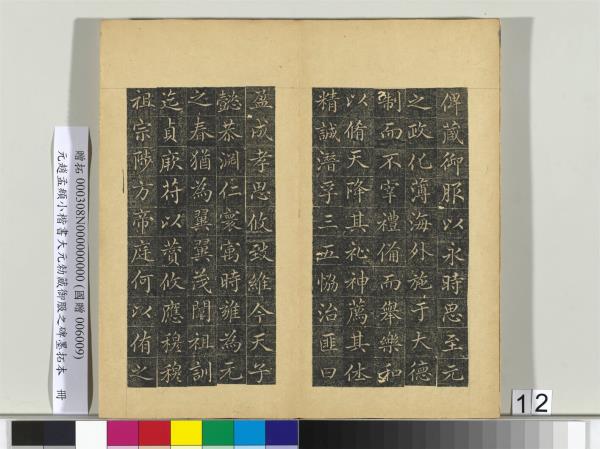 俾蔵御服以永時思至元
之政化薄海外施于大德
制而不宰禮備而舉樂和
以脩天降其祉神薦其休
精誠潛孚三五恊治匪曰
盈成孝思攸致維今天子
懿恭淵仁寰寓時雝為元
之春猶為翼翼茂闡祖訓
迄貞厥符以賛攸應穆穆
祖宗陟方帝庭何以侑之
贈拓 000308N000000000 (國贈 006009)
元趙孟頫小楷書大元勅藏御服之碑墨拓本 冊
12